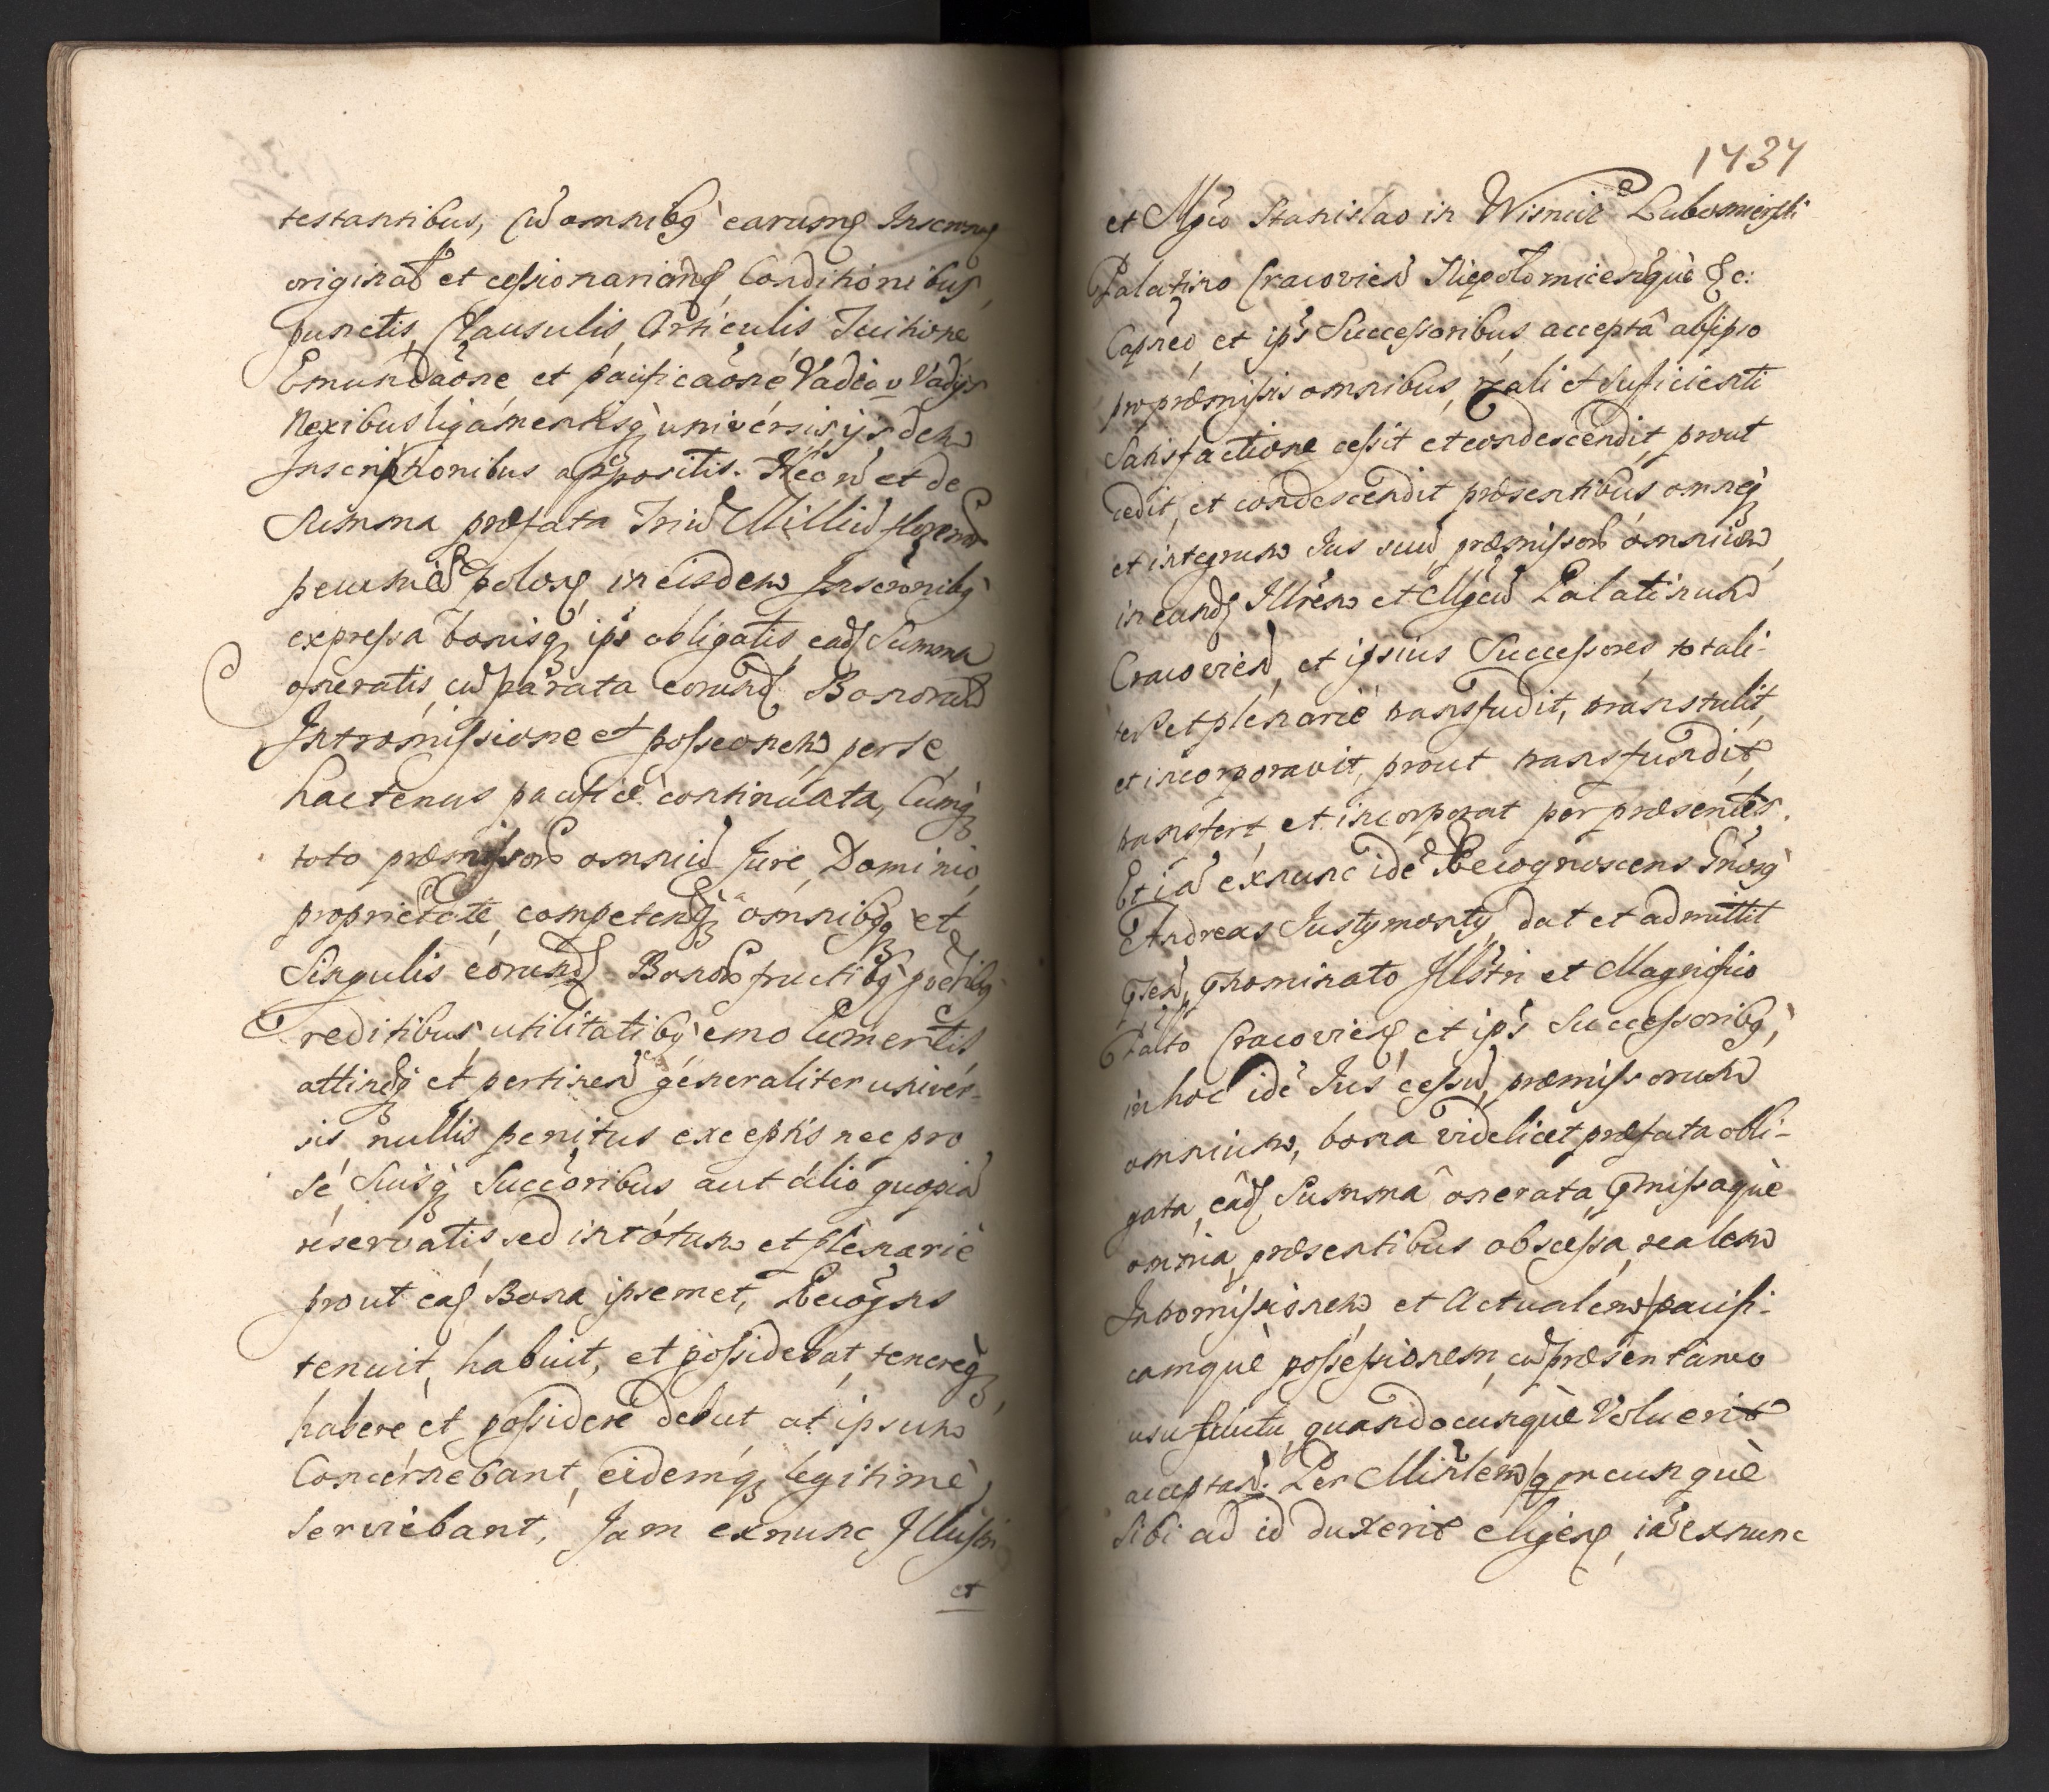 testantibus, cũ omnibq́ earumq Inscrnuq
original et cessionariarq, Conditionibus,
punctis, Clausulis, Articulis, Tuitione
Emundaõne et pacificaõne Vadio v Vadijs
Nexibus ligamentisq́ universis, ijsdem
Inscriptionibus appositis. Nec ñ et de
Summa præfata Triũ Milliũ floreno
pecuniæ polonq in eisdem Inscrõnibq́
expressa bonisq ips obligatis, eadq Summa
oneratis, cũ parata eorundq Bonorum
Intromissione et posseonem, per se
hactenus pacificè continuata, Cumq́
toto præmissor omniũ Jure, Dominio,
proprietate, competenq omnibqq et
Singulis eorundq Bonor fructibq́
reditibus, utilitatibq́ emolumentis,
attinenq et pertinen generaliter univer-
sis nullis penitus exceptis nec pro
se, Suisq́ Succõribus aut alio quopiã
reservatis, sed in totum et plenariè
prout eaq Bona ipsemet, Recogns
tenuit, habuit, et possidebat, tenereq́,
habere et possidere debuit at ipsum
Concernebant, eidemq legitimè
serviebant, Jam exnunc Illustri
et
1737
et Mgco Stanislao in Wisnicz Lubomirski
Palatino Cracovien Niepolomicenquè &c:
Capneo, et ips Successoribus, acceptâ ab ipso
pro præmissis omnibus, reali et sufficienti
Satisfactione cessit et condescendit, prout
cedit, et condescendit præsentibus omneq́
et integrum Jus suũ præmissor omnium,
in eandq Illrem et Mgcũ Palatinum
Cracovien, et ipsius Successores totali-
ter et plenariè transfudit, transtulit,
et incorporavit, prout transfundit,
transfert, et incorporat per præsentes.
Et iã exnunc idẽ Recognoscens Gnosq́
Andreas Justymonty, dat et admittit
nominato Illstri et Magnifico
Palto Cracovienq et ips Successoribq́,
in hoc idẽ Jus cessũ, præmissorum
omnium, bona videlicet præfata obli-
gata, eâdq Summâ onerata, missaquè
omnia, præsentibus obsessa, realem
Intromissionem et Actualem pacifi-
camquè possessionem, cũ præsentaneo
usufructu, quandocunquè Voluerit
acceptan. Per Minlem, quemcunquè
sibi ad id duxerit eligenq, iã exnunc